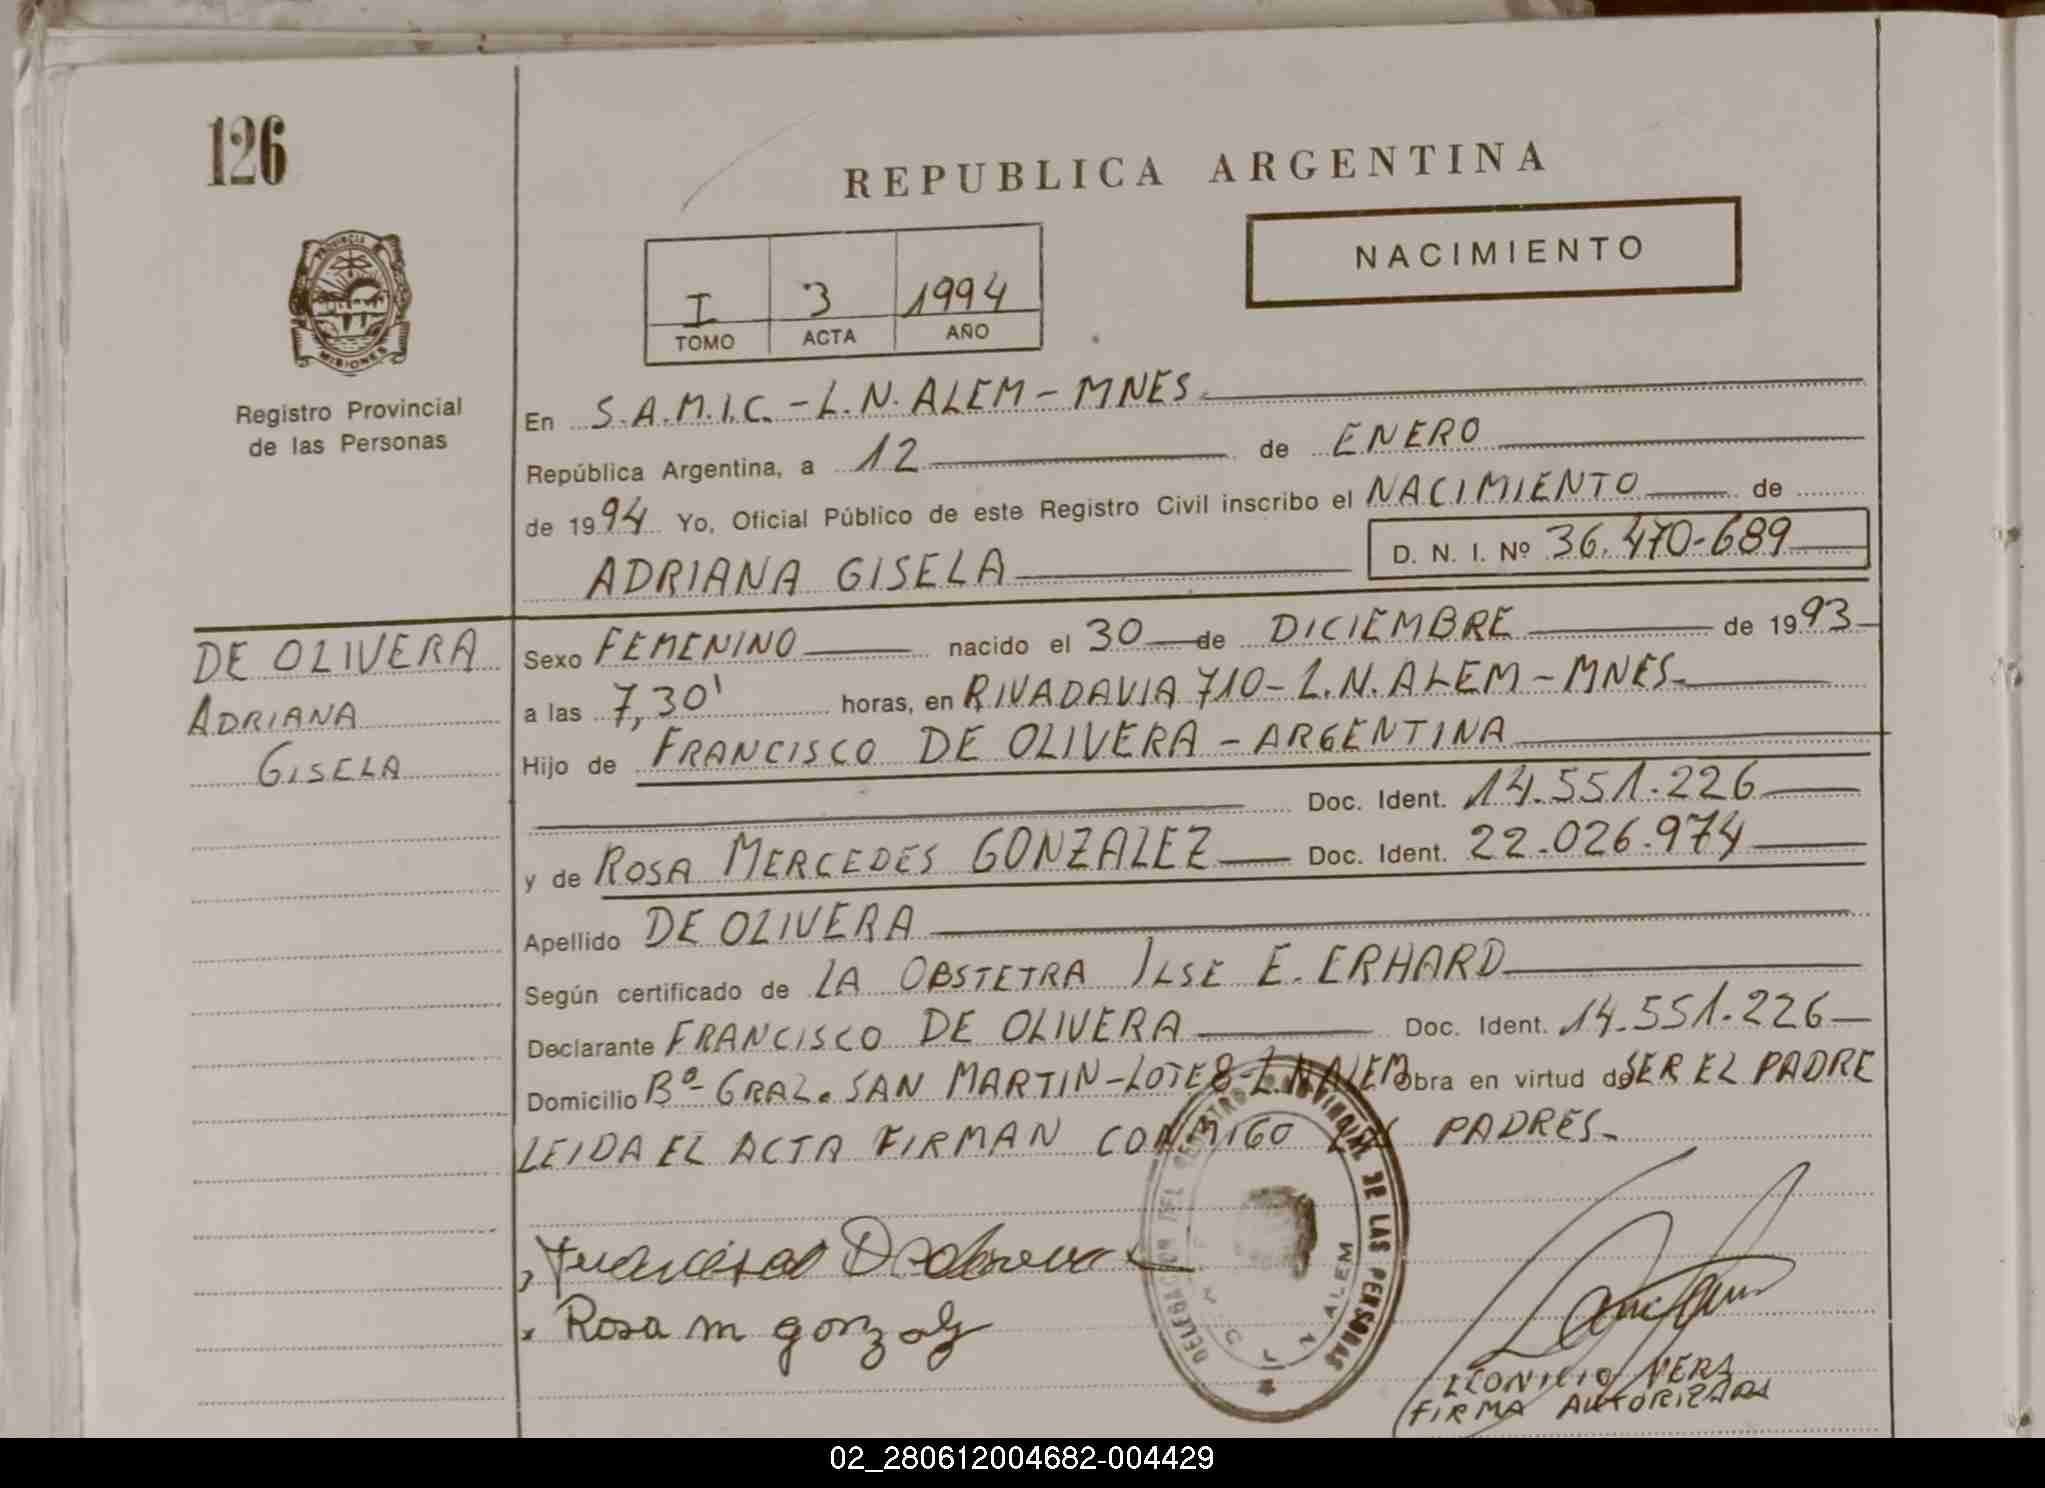 126
REPUBLICA ARGENTINA
NACIMIENTO
PROVINCIA
MISIONES
I 3 1994
TOMO ACTA AÑO
Registro Provincial
de las Personas
En S.A.M.I.C. - L.N. ALEM - MNES.
República Argentina, a 12 de ENERO
de 1994 Yo, Oficial Público de este Registro Civil inscribo el NACIMIENTO de
ADRIANA GISELA D. N. I. Nº 36.470-689
DE OLIVERA
ADRIANA
GISELA
Sexo FEMENINO nacido el 30 de DICIEMBRE de 1993
a las 7,30' horas, en RIVADAVIA 710 - L.N. ALEM - MNES.
Hijo de FRANCISCO DE OLIVERA - ARGENTINA
Doc. Ident. 14.551.226
y de ROSA MERCEDES GONZALEZ Doc. Ident. 22.026.974
Apellido DE OLIVERA
Según certificado de LA OBSTETRA ILSE E. ERHARD
Declarante FRANCISCO DE OLIVERA Doc. Ident. 14.551.226
Domicilio Bº - GRAL. SAN MARTIN - LOTE 8 - L.N ALEM Obra en virtud de SER EL PADRE
LEIDA EL ACTA FIRMAN CONMIGO LOS PADRES.
DELEGACION DEL REGISTRO PROVINCIAL DE LAS PERSONAS
ALEM
Francisco
Rosa m gonzalz
VERA
FIRMA AUTORIZADA
02_280612004682-004429